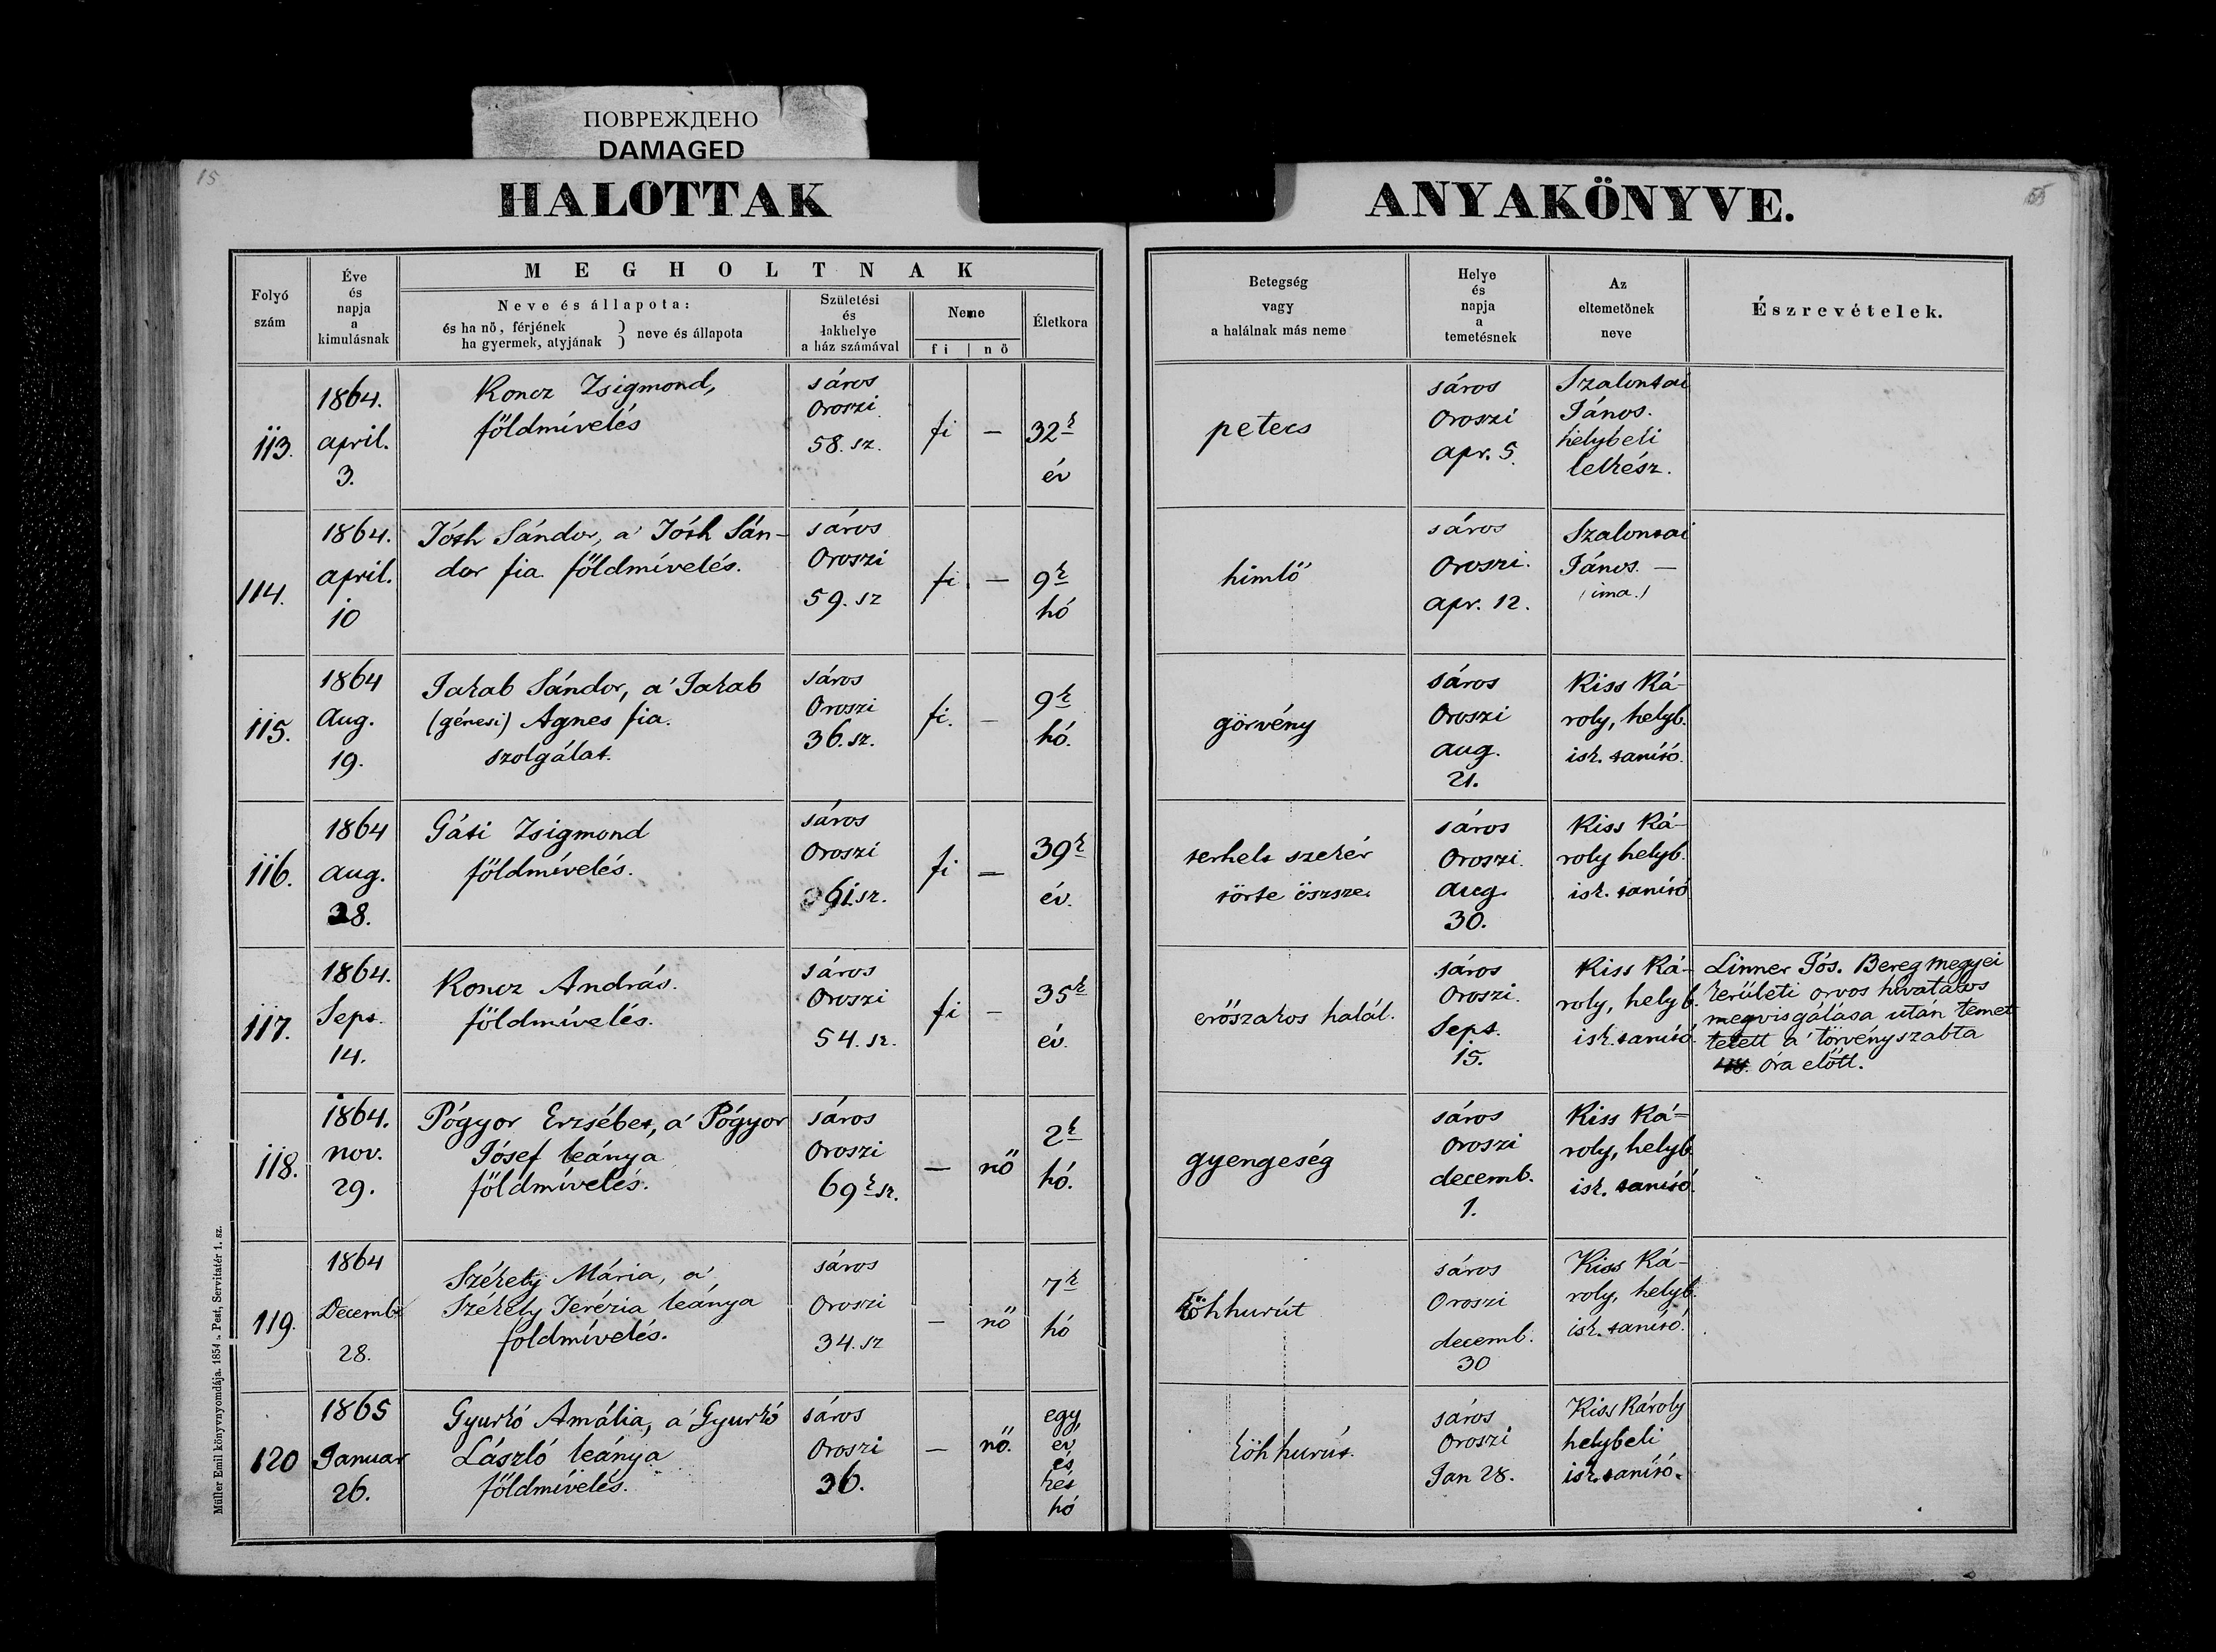 ПОВРЕЖДЕНО
DAMAGED
15
55
HALOTTAK
ANYAKÖNYVE.
Folyó
szám
Éve
és
napja
a
kimulásnak
MEGHOLTNAK
Neve és állapota:
és ha nö, férjének
ha gyermek, atyjának
} neve és állapota
Születési
és
lakhelye
a ház számával
Neme
fi
nö
Életkora
Betegség
vagy
a halálnak más neme
Helye
és
napja
a
temetésnek
Az
eltemetönek
neve
Észrevételek.
113.
1864.
april.
3.
Koncz Zsigmond,
földmívelés
sáros
Oroszi
58. sz.
fi
—
32k
év
petecs
sáros
Oroszi
apr. 5.
Szalontai
János.
helybeli
lelkész.
114.
1864.
april.
10
Tóth Sándor, a' Tóth Sán-
dor fia földmívelés.
sáros
Oroszi
59. sz
fi
—
9k
hó
himlő
sáros
Oroszi.
apr. 12.
Szalontai
János. —
(ima.)
115.
1864
Aug.
19.
Jakab Sándor, a' Jakab
(génesi) Agnes fia.
szolgálat.
sáros
Oroszi
36. sz.
fi.
—
9k
hó.
görvény
sáros
Oroszi
aug.
21.
Kiss Ká-
roly, helyb.
isk. tanító.
116.
1864
aug.
28.
Gáti Zsigmond
földmívelés.
sáros
Oroszi
61. sz.
fi
—
39k
év.
terhelt szekér
törte öszsze.
sáros
Oroszi.
aug.
30.
Kiss Ká-
roly helyb.
isk. tanító
117.
1864.
Sept.
14.
Koncz András.
földmívelés.
sáros
Oroszi
54. sz.
fi
—
35k
év.
erőszakos halál.
sáros
Oroszi.
Sept.
15.
Kiss Ká-
roly, helyb.
isk. tanító.
Linner Jós. Bereg megyei
kerületi orvos hivatalos
megvisgálása után temet
tetett a' törvényszabta
48. óra előtt.
118.
1864.
nov.
29.
Pógyor Erzsébet, a' Pógyor
Jósef leánya
földmívelés.
sáros
Oroszi
69k sz.
—
nő
2k
hó.
gyengeség
sáros
Oroszi
decemb.
1.
Kiss Ká=
roly, helyb.
isk. tanító.
119.
1864
Decemb.
28.
Székely Mária, a'
Székely Terézia leánya
földmívelés.
sáros
Oroszi
34. sz
—
nő
7k
hó
köhhurút
sáros
Oroszi
decemb.
30
Kiss Ká-
roly, helyb.
isk. tanító.
120
1865
Januar
26.
Gyurkó Amália, a' Gyurkó
László leánya
földmívelés.
sáros
Oroszi
36.
—
nő.
egy
év
és
két
hó
köhhurút.
sáros
Oroszi
Jan 28.
Kiss Károly
helybeli
isk. tanító.
Müller Emil könyvnyomdája. 1854. Pest, Servitatér 1. sz.